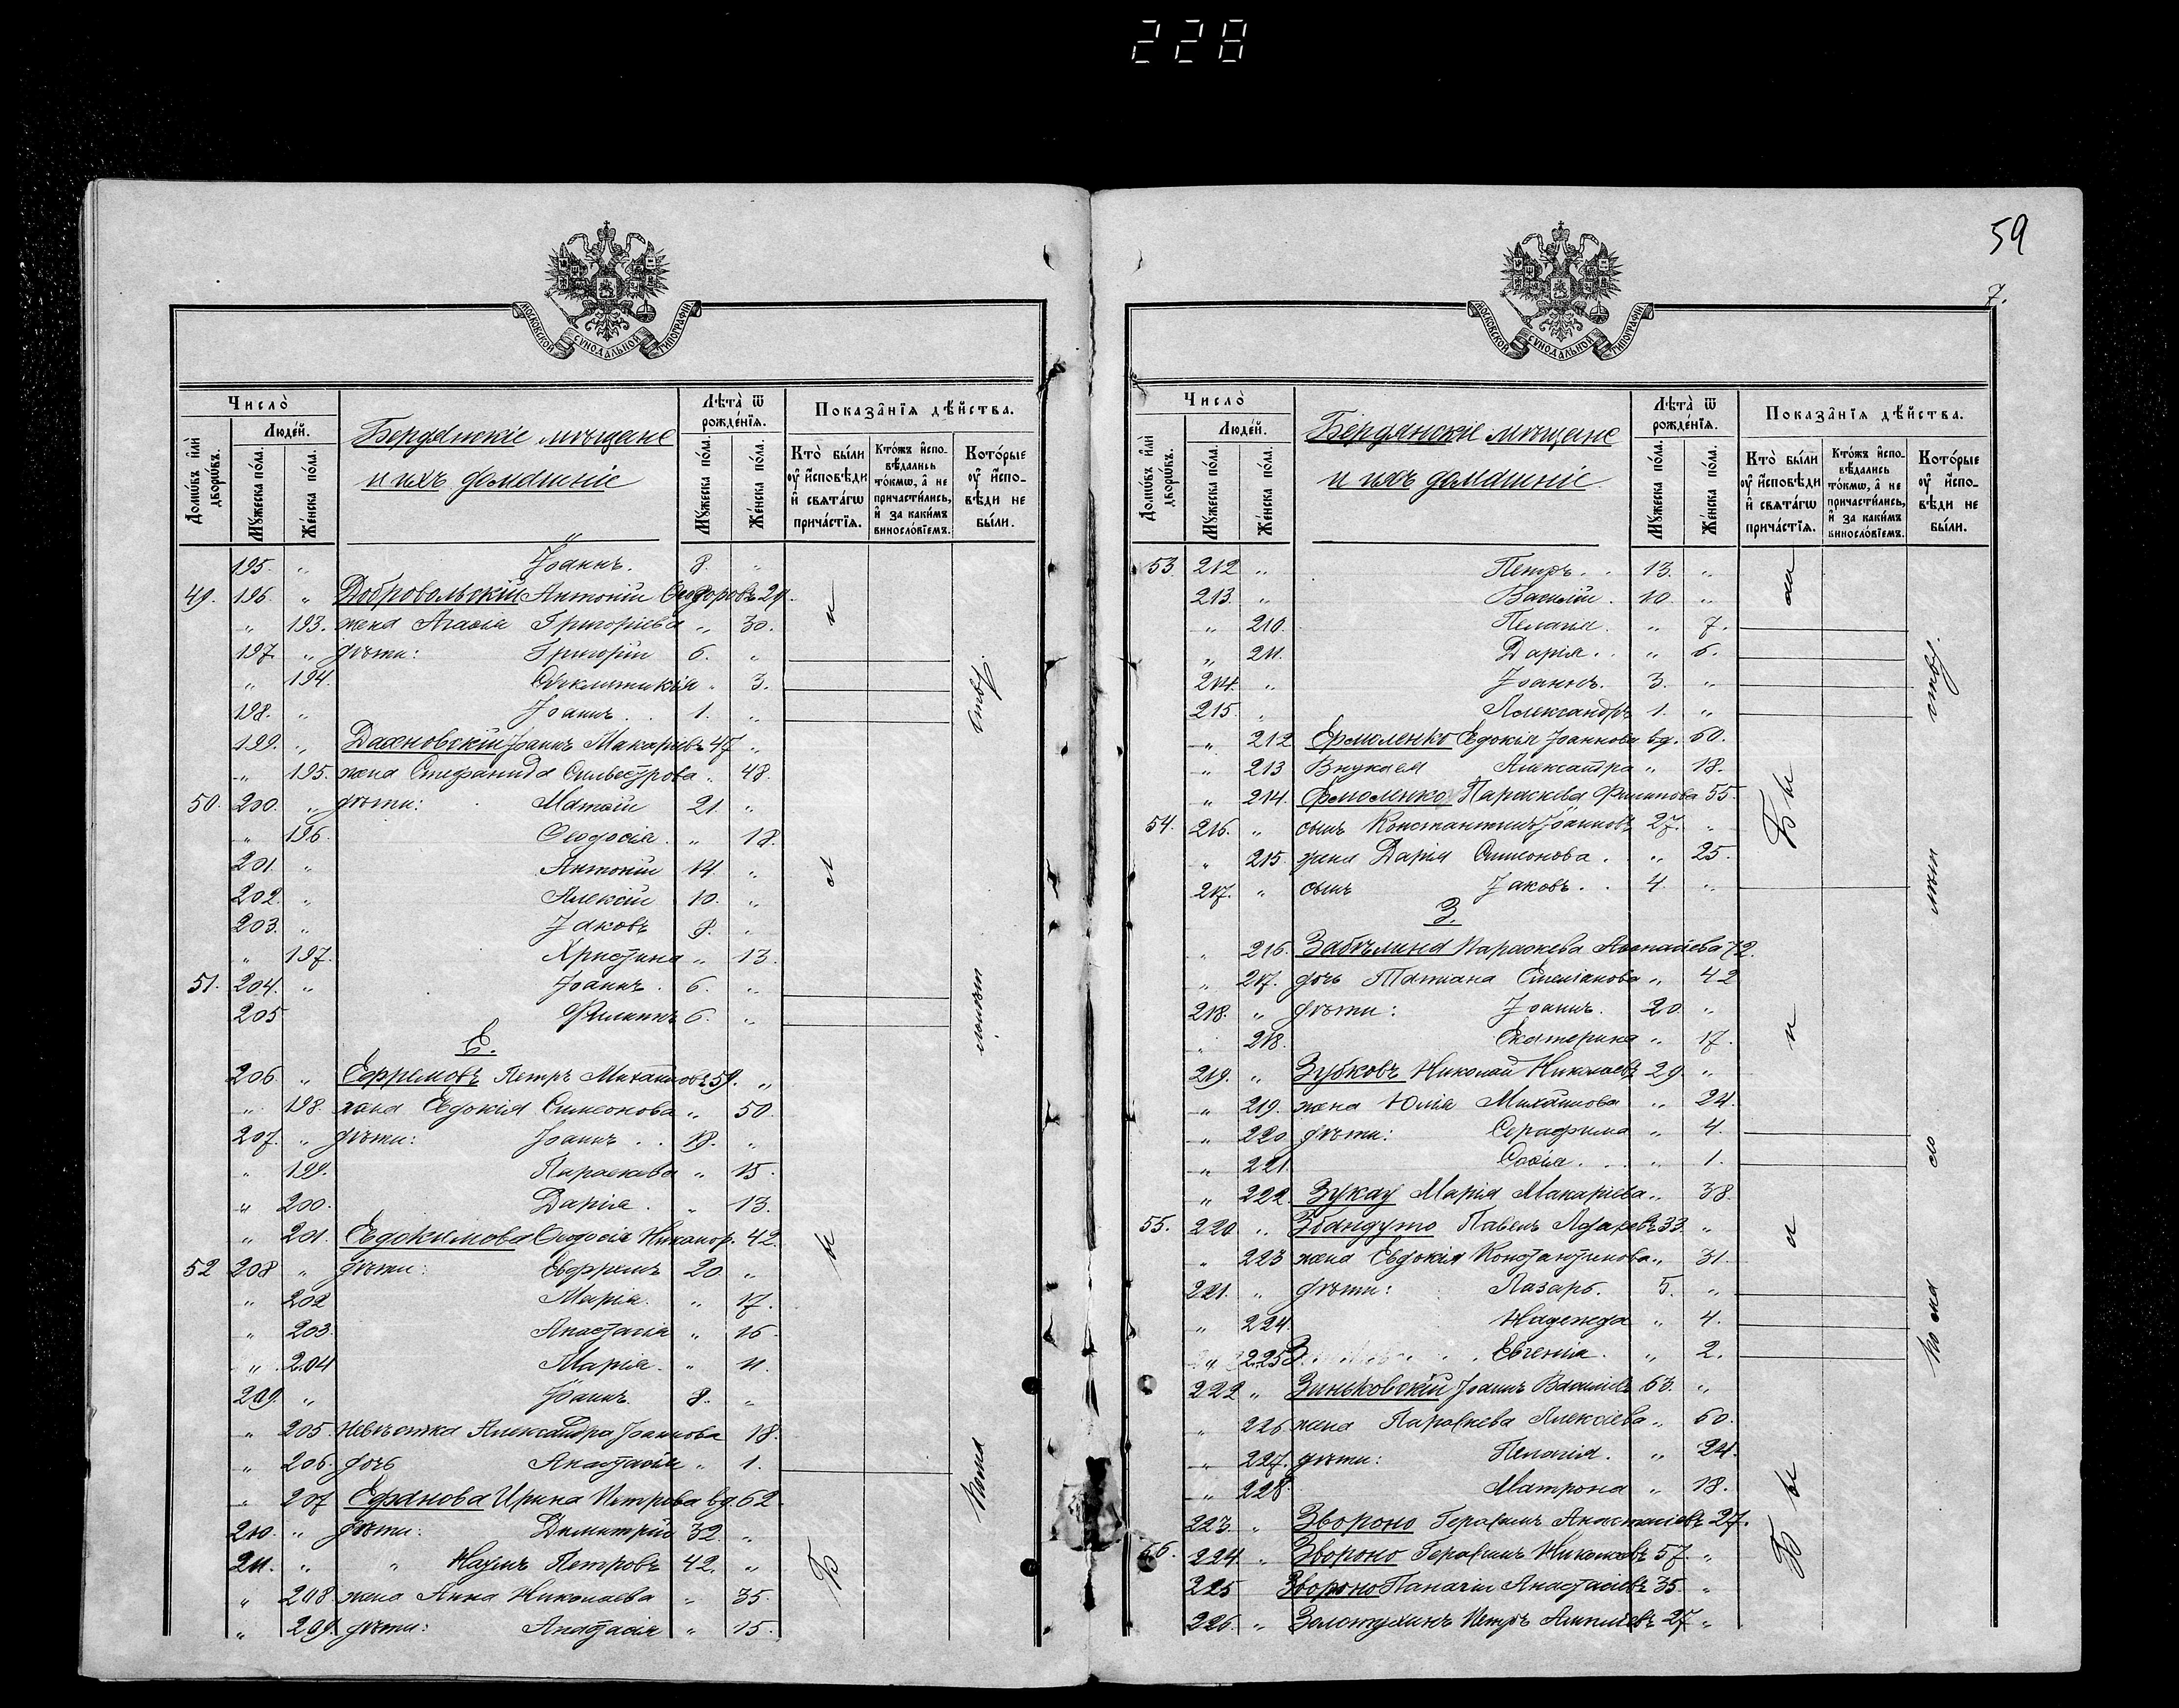 228
МОСКОВСКОЙ СѴНОДАЛЬНОЙ ТИПОГРАФІИ
Число̀
Домѡвъ и҆лѝ дворѡвъ.
Люде́й.
Мꙋ́жеска по́ла.
Же́нска по́ла.
Бердянскіе мѣщане
и ихъ домашніе
Лѣта̀ ѿ рожде́нїѧ.
Мꙋ́жеска по́ла.
Же́нска по́ла.
Показа̑нїѧ дѣ́йства.
Кто̀ бы́ли оу҆ и҆сповѣди и҆ свѧта́гѡ прича́стїѧ.
Кто́жъ и҆спо-вѣ́дались то́кмѡ, а҆ не причасти́лись, и҆ за каки́мъ виносло́вїемъ.
Кото́рые оу҆ и҆спо-вѣди не бы́ли.
195. „ Іоаннъ. 8. „
49. 196. „ Добровольскій Антоній Ѳеодоровъ 29.
„ 193. жена Агаѳія Григоріева „ 30.
197. „ дѣти: Григорій 6. „
„ 194. Сигклитикія „ 3.
198. „ Іоаннъ . . 1. „
199. „ Дахновскій Іоаннъ Макаріевъ 47 „
„ 195. жена Стефанида Сильвестрова „ 48.
50. 200. „ дѣти: Матѳій 21. „
„ 196. Ѳеодосія . „ 18.
201. „ Антоній 14. „
202. „ Алексій 10. „
203. „ Іаковъ 8. „
„ 197. Христина „ 13.
51. 204. „ Іоаннъ . 6. „
205 Филиппъ 6. „
Е.
206. „ Ефремовъ Петръ Михаиловъ 59. „
„ 198. жена Евдокія Симеонова „ 50.
207. „ дѣти: Іоаннъ . . 18. „
„ 199. Параскева „ 15.
„ 200. Дарія . „ 13.
„ 201. Евдокимова Ѳеодосія Никанор. 42.
52 208 „ дѣти: Евфремъ 20 „
„ 202 Марія. „ 17.
„ 203. Анастасія „ 15.
„ 204 Марія. „ 11.
209. „ Іоаннъ. 8. „
„ 205. Невѣстка Александра Іоаннова 18.
„ 206. дочь Анастасія „ 1.
„ 207 Ефанова Ирина Петрова вд. 62.
210. „ дѣти: Димитрій 32. „
211. „ „ Наумъ Петровъ 42. „
„ 208 жена Анна Николаева „ 35.
„ 209. дѣти: Анастасія „ 15.
59
7.
МОСКОВСКОЙ СѴНОДАЛЬНОЙ ТИПОГРАФІИ
Число̀
Домѡвъ и҆лѝ дворѡвъ.
Люде́й.
Мꙋ́жеска по́ла.
Же́нска по́ла.
Бердянскіе мѣщане
и ихъ домашніе
Лѣта̀ ѿ рожде́нїѧ.
Мꙋ́жеска по́ла.
Же́нска по́ла.
Показа̑нїѧ дѣ́йства.
Кто̀ бы́ли оу҆ и҆сповѣди и҆ свѧта́гѡ прича́стїѧ.
Кто́жъ и҆спо-вѣ́дались то́кмѡ, а҆ не причасти́лись, и҆ за каки́мъ виносло́вїемъ.
Кото́рые оу҆ и҆спо-вѣди не бы́ли.
53 212 „ Петръ. . 13. „
213. „ Василій . 10. „
„ 210. Пелагія. „ 7.
„ 211. Дарія. . „ 6.
214. „ Іоаннъ. 3. „
215. „ Александръ 1. „
„ 212 Ермоленко Евдокія Іоаннова вд. 60.
„ 213 Внука ея Александра „ 18.
„ 214. Ермоленко Параскева Филипова 55.
54. 216. „ сынъ Константинъ Іоанновъ 27. „
„ 215. жена Дарія Симеонова . „ 25.
217. „ сынъ Іаковъ. . 4. „
З.
„ 216. Забѣлина Параскева Аѳанасіева 72.
„ 217. дочь Татіана Емеліанова „ 42
218. „ дѣти: Іоаннъ. 20. „
„ 218. Екатерина „ 17.
219. „ Зубковъ Николай Николаевъ 29. „
„ 219. жена Юлія Михаилова „ 24.
„ 220 дѣти: Серафима „ 4.
„ 221. Софія. . . „ 1.
„ 222 Зукау Марія Макаріева „ 38.
55. 220. „ Павелъ 33. „
„ 223 жена Евдокія Константинова „ 31.
221. „ дѣти: Лазарь. 5. „
„ 224. Надежда „ 4.
„ 225 Евгенія. „ 2.
222 „ Зиньковскій Іоаннъ Васильевъ 63. „
„ 226 жена Параскева Алексіева „ 60.
„ 227. дѣти: Пелагія. „ 24.
„ 228. Матрона „ 18.
223. „ Звороно Герасимъ Анастасіевъ 27.
56. 224. „ Звороно Герасимъ Николаевъ 57. „
225 Звороно Панагій Анастасіевъ 35. „
226. „ Золотухинъ Петръ 27 „